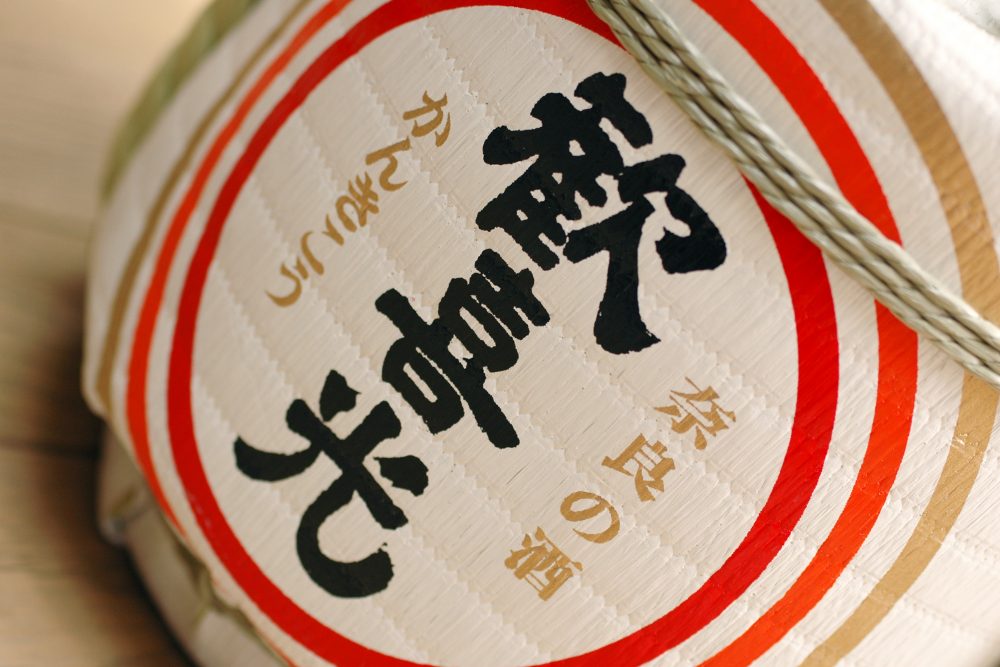 奈良の酒
歡喜光
かんきこう